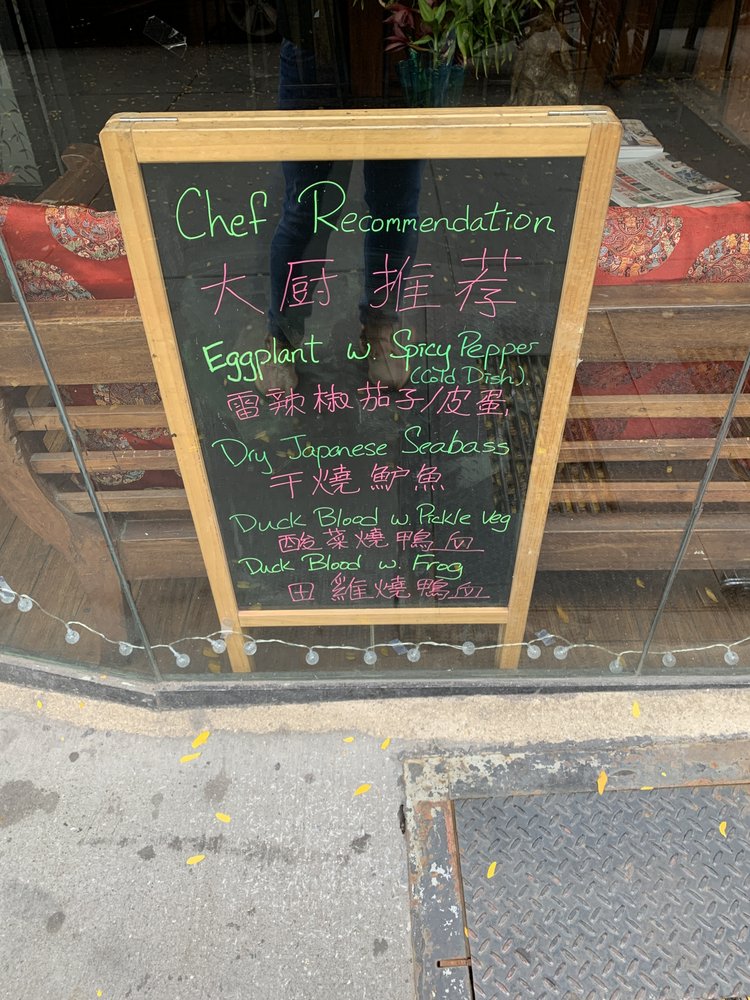 Chef Recommendation
大厨推荐
Eggplant w. Spicy Pepper
(Cold Dish).
雷辣椒茄子/皮蛋
Dry Japanese Seabass
干燒鲈魚
Duck Blood w. Pickle Veg
酸菜燒鴨血
Duck Blood w. Frog
田雞燒鴨血